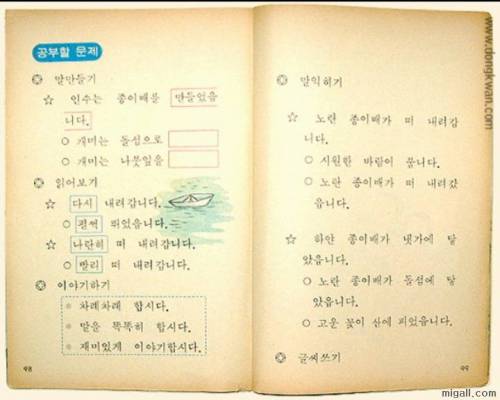 공부할 문제
말만들기
☆ 인수는 종이배를 만들었습
니다.
○ 개미는 돌섬으로
○ 개미는 나뭇잎을
읽어보기
☆ 다시 내려갑니다.
○ 펄쩍 뛰었습니다.
☆ 나란히 떠 내려갑니다.
○ 빨리 떠 내려갑니다.
이야기하기
차례차례 합시다.
말을 똑똑히 합시다.
재미있게 이야기합시다.
98
말익히기
☆ 노란 종이배가 떠 내려갑
니다.
○ 시원한 바람이 붑니다.
○ 노란 종이배가 떠 내려갔
습니다.
☆ 하얀 종이배가 냇가에 닿
았습니다.
○ 노란 종이배가 돌섬에 닿
았습니다.
○ 고운 꽃이 산에 피었습니다.
글씨쓰기
99
www.dongkwan.com
migall.com